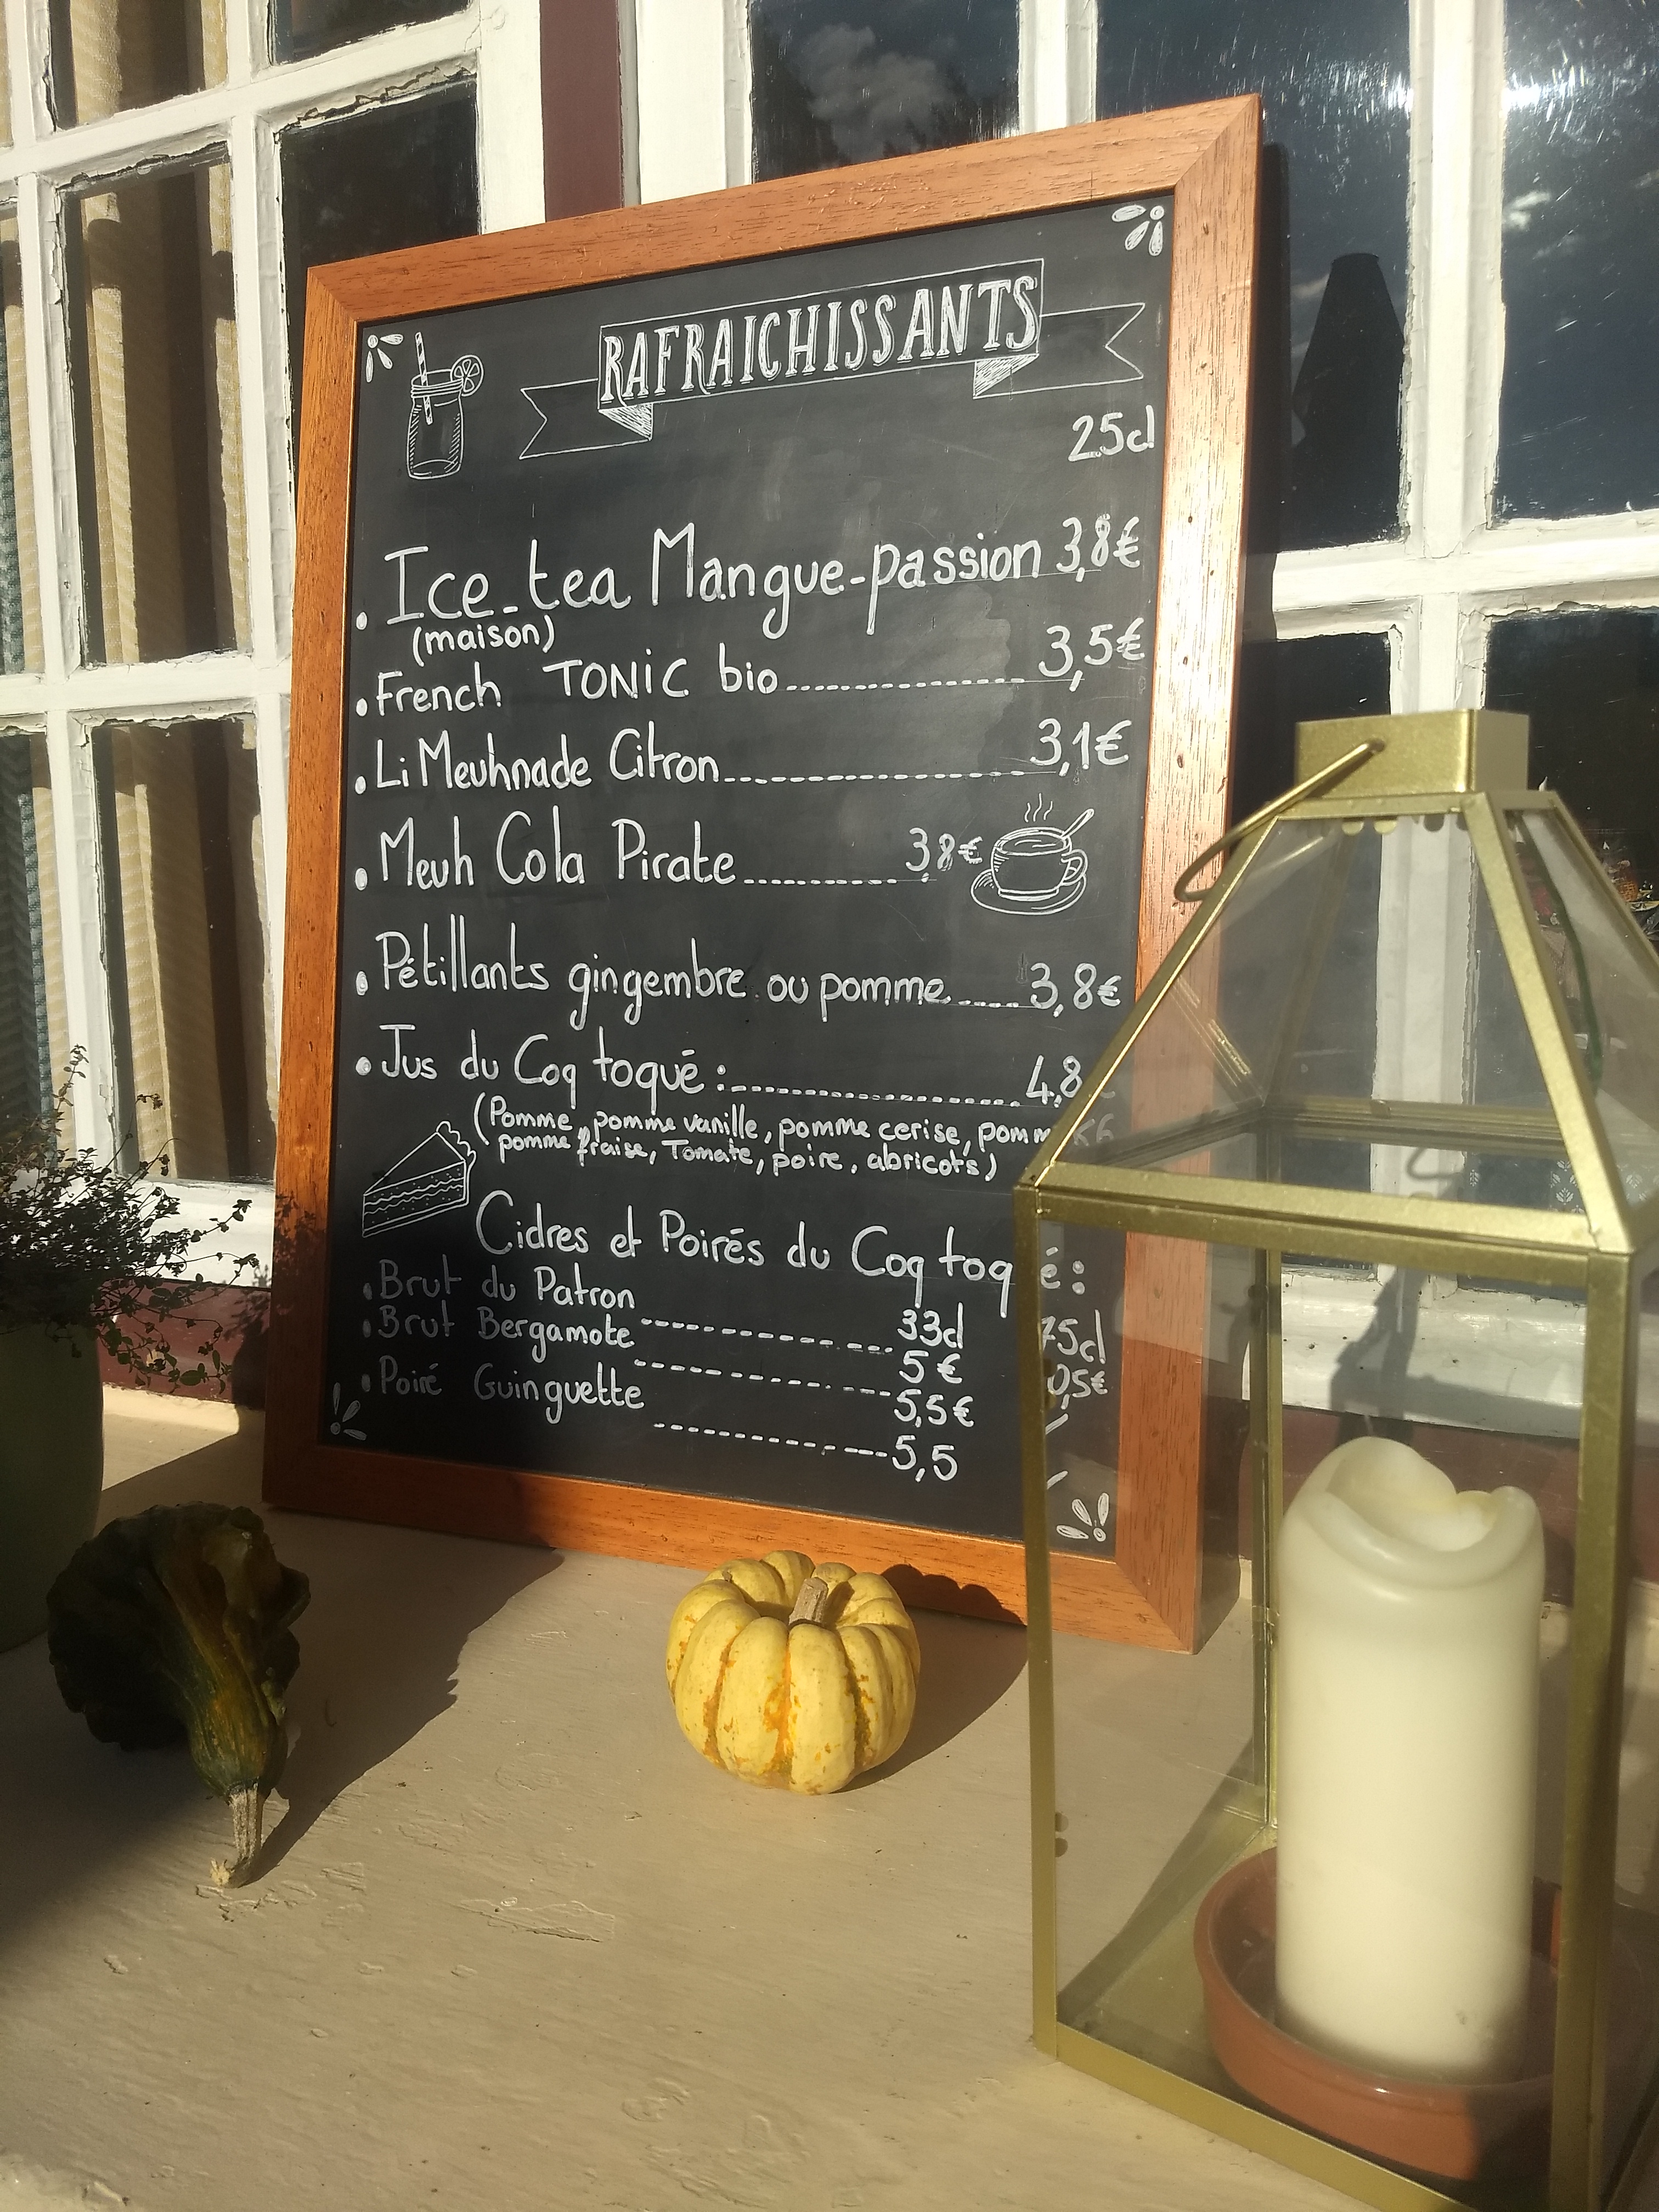 RAFRAICHISSANTS
25cl
• Ice-tea Mangue-passion 3,8€
(maison)
• French TONIC bio 3,5€
• Li Meuhnade Citron 3,1€
• Meuh Cola Pirate 3,8€
• Pétillants gingembre ou pomme 3,8€
• Jus du Coq toqué : 4,8
(Pomme, pomme vanille, pomme cerise,
pomme fraise, Tomate, poire, abricots)
Cidres et Poirés du Coq toqué :
33cl 75cl
• Brut du Patron 5€
• Brut Bergamote 5,5€
• Poiré Guinguette 5,5